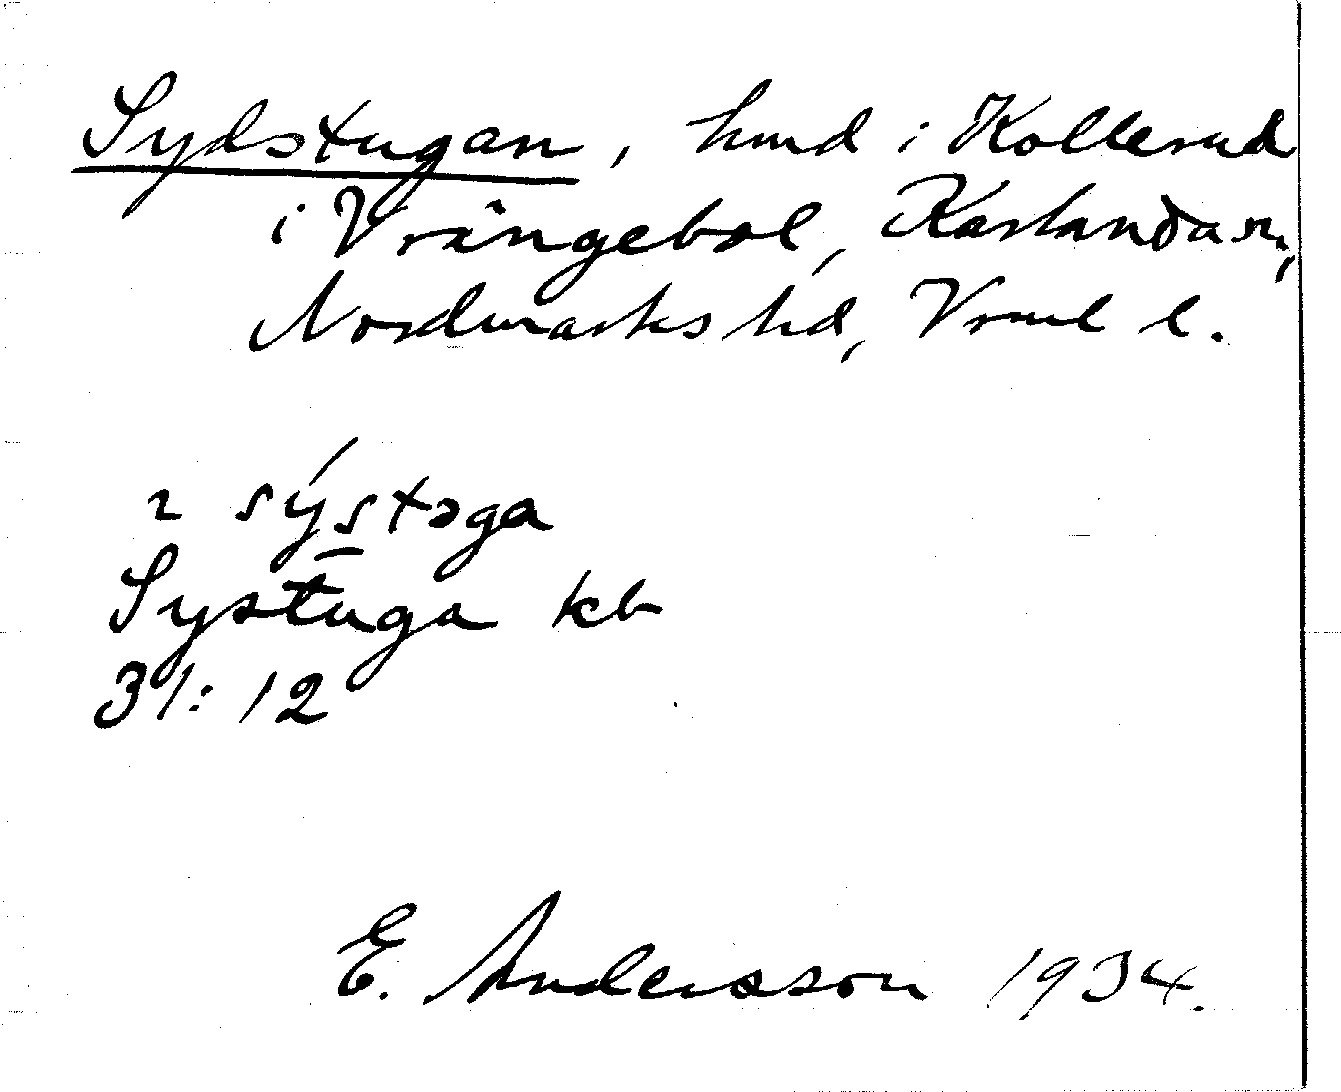 Sydstugan, hmd i Kollerud
i Vrångebol, Karlanda sn,
Nordmarks hd, Vrml l.
2 sýstəga
Systuga kb
31:12
E. Andersson 1934.